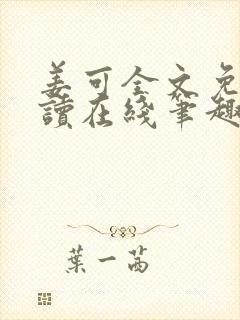 姜可全文免
讀在綫筆趣
葉一茜